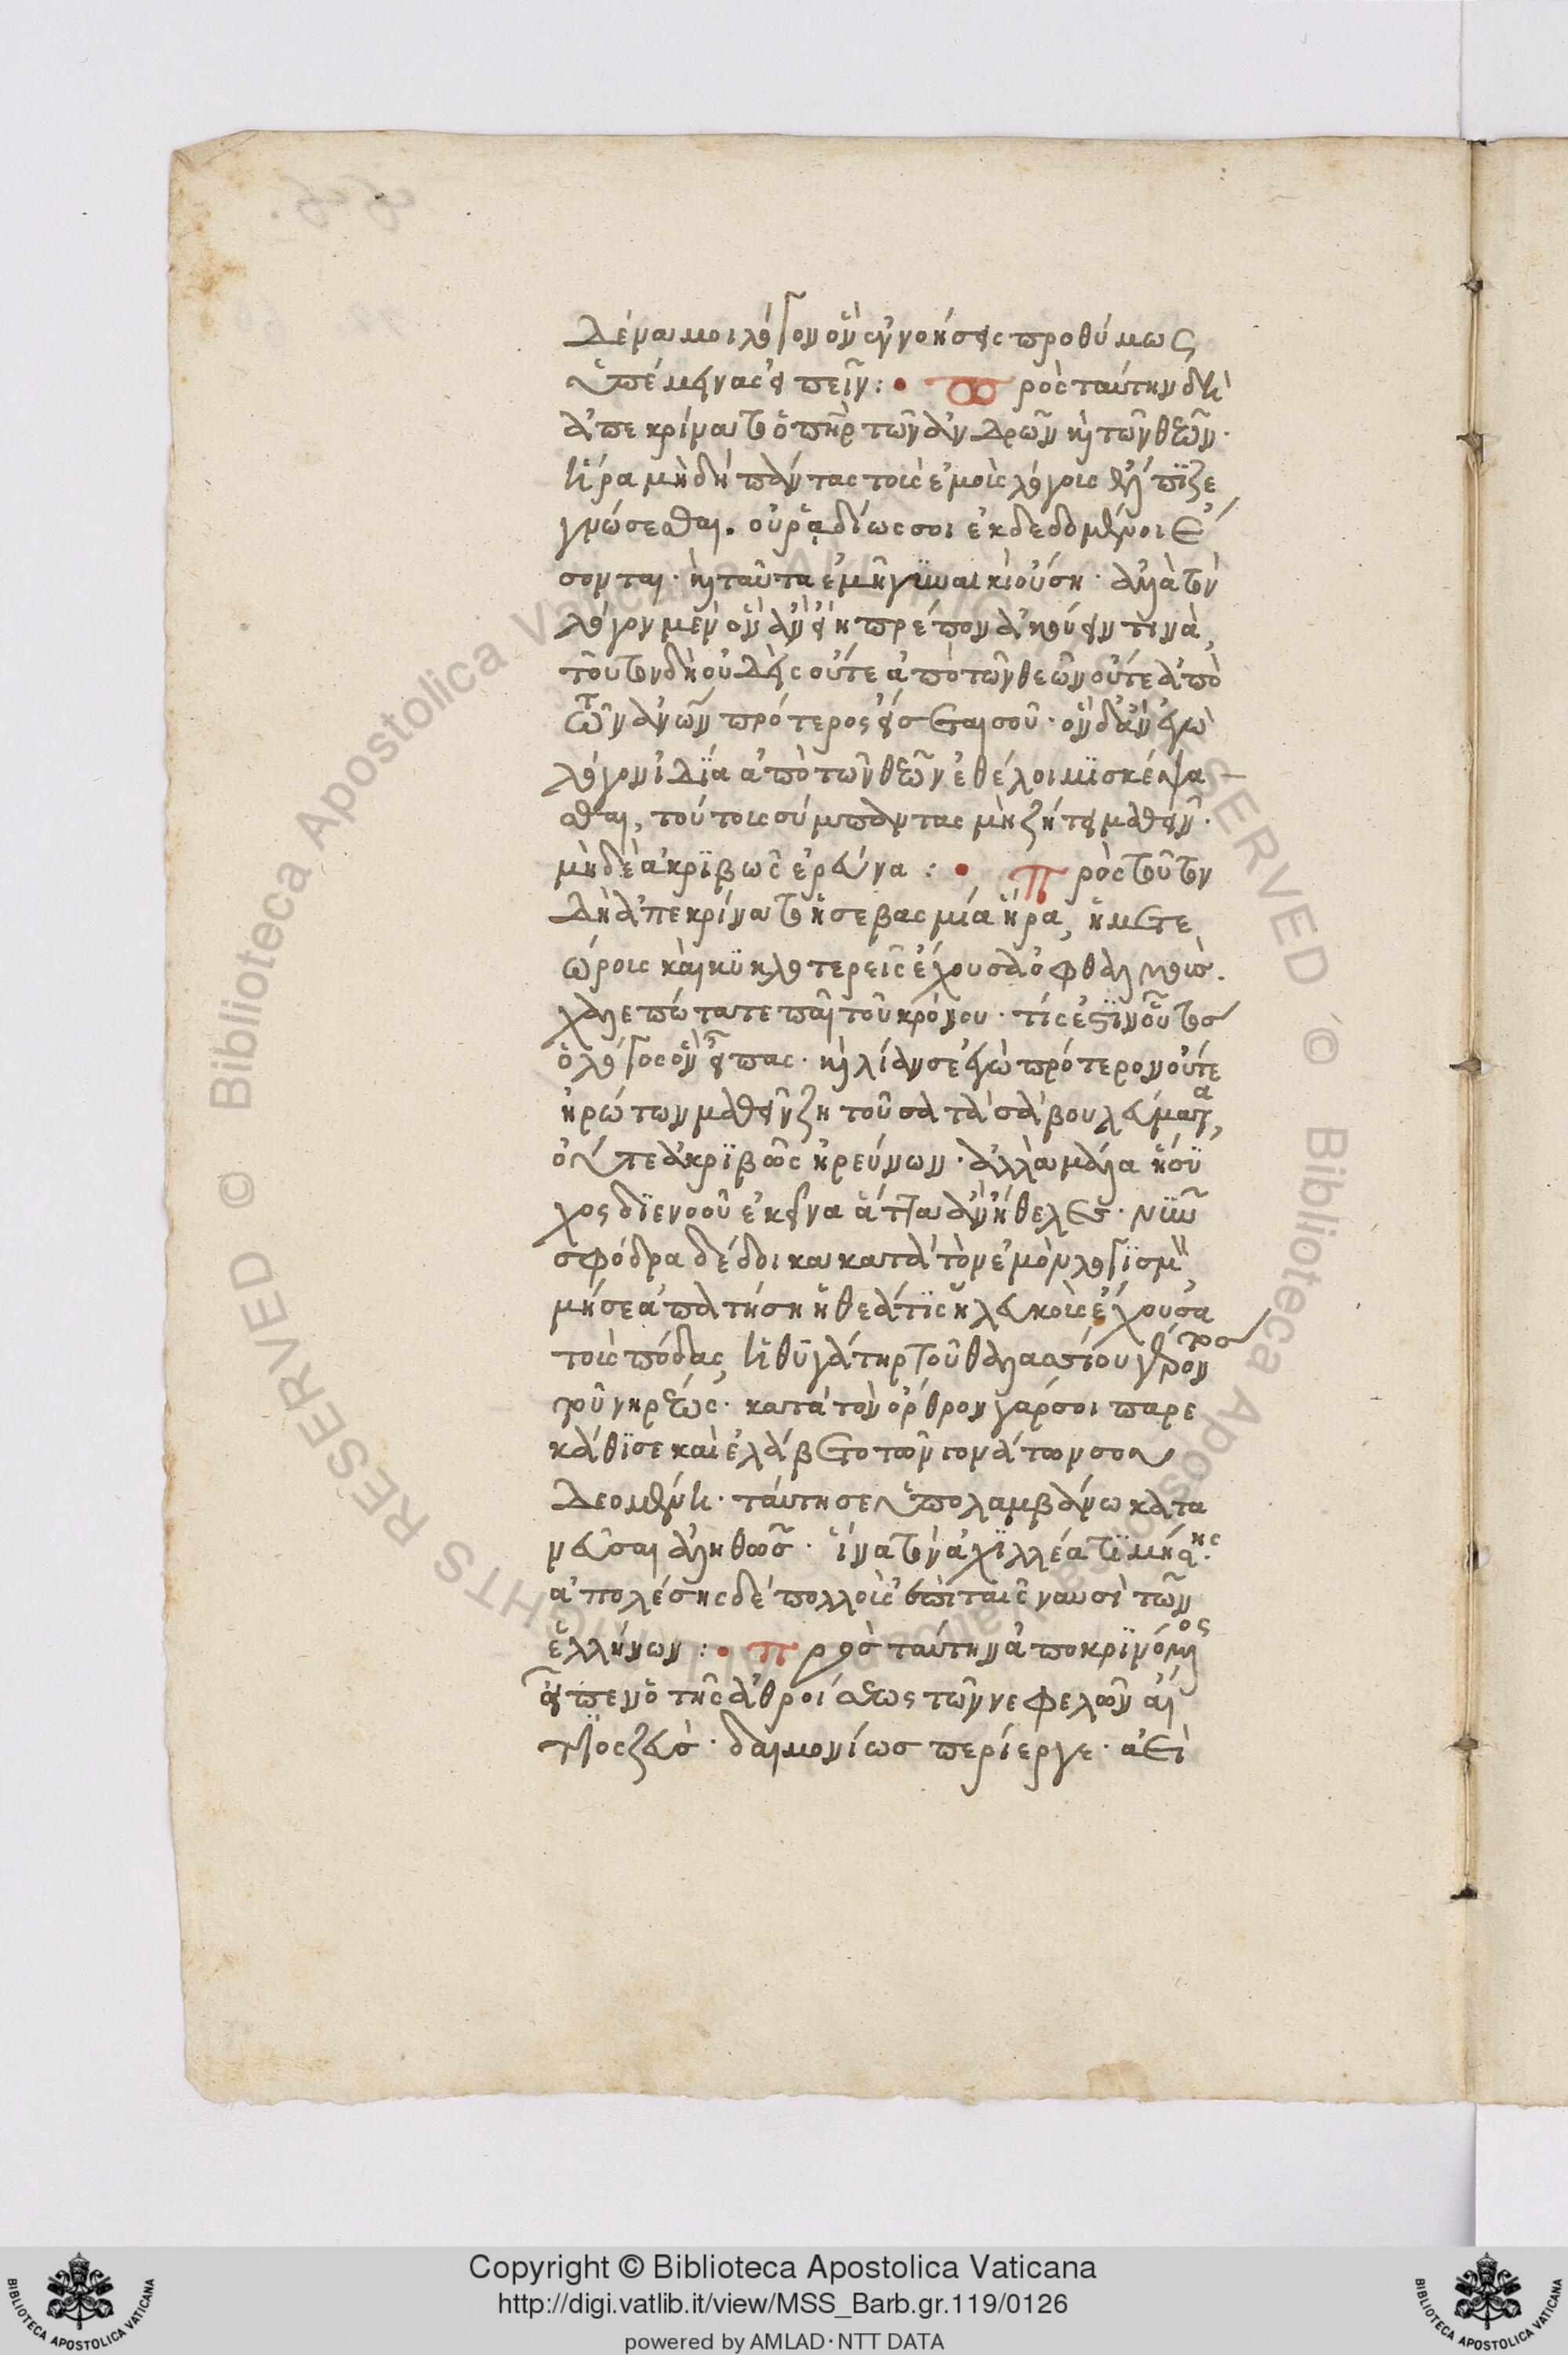 δένα μοι λόγον ὃν ἐννοήσεις προθύμως
ὑπέμεινας εἰπεῖν : • Πρὸς ταύτην δὴ
ἀπεκρίνατο ὁ πηρ τῶν ἀνδρῶν καὶ τῶν θεῶν ·
ἥρα μὴ δὴ πάντας τοὶς ἐμοὶς λόγοις ἔλπϊζε
γνώσεσθαι. οὐ ῥᾳδίως σοι ἐκδεδομένοι ἔ
σονται · καὶ ταῦτα ἐμῇ γϋναικὶ οὔση · ἀλλὰ τὸν
λόγον μὲν ὃν ἂν εἴη πρέπον ἀκούειν τινὰ,
τοῦτον δὴ οὐδεὶς οὔτε ἀπὸ τῶν θεῶν οὔτε ἀπὸ
τῶν ἀνῶν πρότερος εἴσεται σοῦ · ὃν δ' ἂν ἐγὼ
λόγον ἰδϊα ἀπὸ τῶν θεῶν ἐθέλοιμϊ σκέψα
σθαι, τούτοις σύμπαντας μὴ ζήτει μαθεῖν ·
μὴ δὲ ἀκρϊβῶς ἐρεύνα : • Πρὸς τοῦτον
δὴ ἀπεκρίνατο ἡ σεβασμία ἥρα, ἡ μετε
ώροις καὶ κϋκλοτερεῖς ἔχουσα ὀφθαλμοὺς.
χαλεπώτατε παῖ τοῦ κρόνου · τίς ἐστϊν οὗτος
ὁ λόγος ὃν εἶπας · καὶ λίαν σε ἐγὼ πρότερον οὔτε
ἠρώτων μαθεῖν ζητοῦσα τὰ σὰ βουλεύματα,
οὔτε ἀκρϊβῶς ἠρεύνων · ἀλλὰ μάλα ἥσϋ
χος δϊενοοῦ ἐκεῖνα ἅττα ἂν ἤθελες · νϋν
σφόδρα δέδοικα κατὰ τὸν ἐμὸν λογϊσμὸν
μή σε ἀπατήση ἡ θεὰ τϊς ἡ λευκοὶς ἔχουσα
τοὶς πόδας, ἡ θϋγάτηρ τοῦ θαλασσίου γέροντος
τοῦ νηρέως · κατὰ τὸν ὄρθρον γάρ σοι παρε
κάθϊσε καὶ ἐλάβετο τῶν γονάτων σου
δεομένη · ταύτη σε ὑπολαμβάνω κατα
νεῦσαι ἀληθῶς · ἵνα τὸν ἀχϊλλέα τϊμήσης ·
ἀπολέσης δὲ πολλοὶς ἐπὶ ταῖς ναυσὶ τῶν
ἑλλήνων : • Πρὸς ταύτην ἀποκρϊνόμενος
εἶπεν ὁ τῆς ἀθροίσεως τῶν νεφελῶν αἴ
τϊος ζεὺς · δαιμονίως περίεργε · ἀεὶ
Copyright © Biblioteca Apostolica Vaticana
http://digi.vatlib.it/view/MSS_Barb.gr.119/0126
powered by AMLAD·NTT DATA